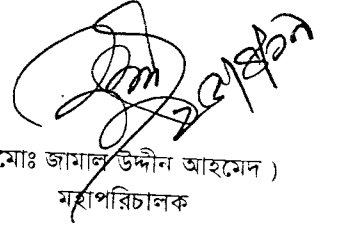 মোঃ জামাল উদ্দীন আহমেদ )
মহাপরিচালক